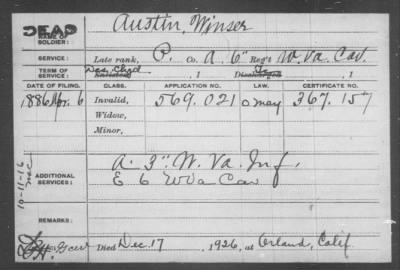 DEAD
NAME OF SOLDIER: Austin, Winser
SERVICE: Late rank, P. Co. A. 6" Reg't W. Va. Cav.
TERM OF SERVICE: Enlisted , 1 Discharged , 1
DATE OF FILING. CLASS. APPLICATION NO. LAW. CERTIFICATE NO.
1886 Apr. 6 Invalid, 569.021 O may 367.157
Widow,
Minor,
A. 3" W. Va. Inf.
ADDITIONAL SERVICES: E 6 W Va Cav
10-11-16
REMARKS:
Died Dec. 17, 1926, at Orland, Calif.